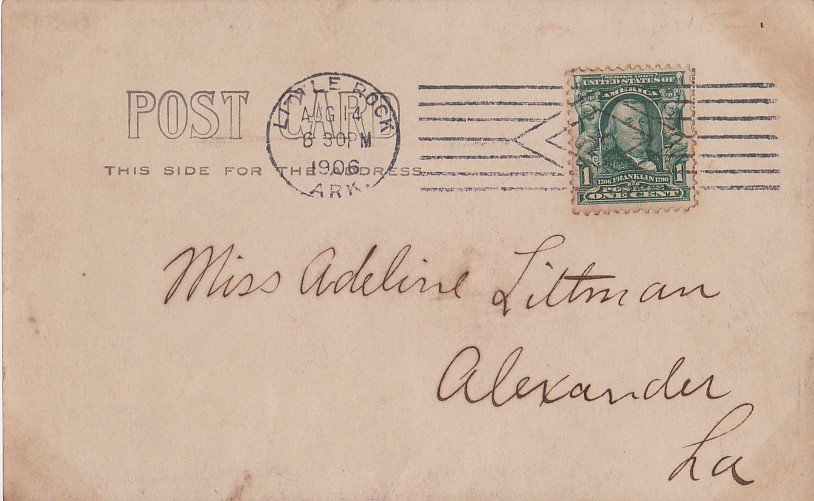 POST CARD
THIS SIDE FOR THE ADDRESS.
LITTLE ROCK
AUG 14
6 30 PM
1906
ARK.
SERIES 1902
UNITED STATES OF
AMERICA
1 1706 FRANKLIN 1790 1
POSTAGE
ONE CENT
Miss Adeline Littman
Alexander
La